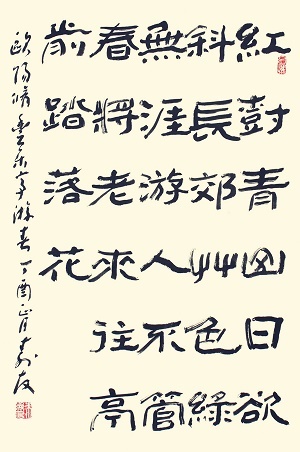 紅尌青山日欲
斜長郊艸色綠
無涯游人不管
春將老來往亭
前踏落花
歐陽脩豐樂亭游春丁酉